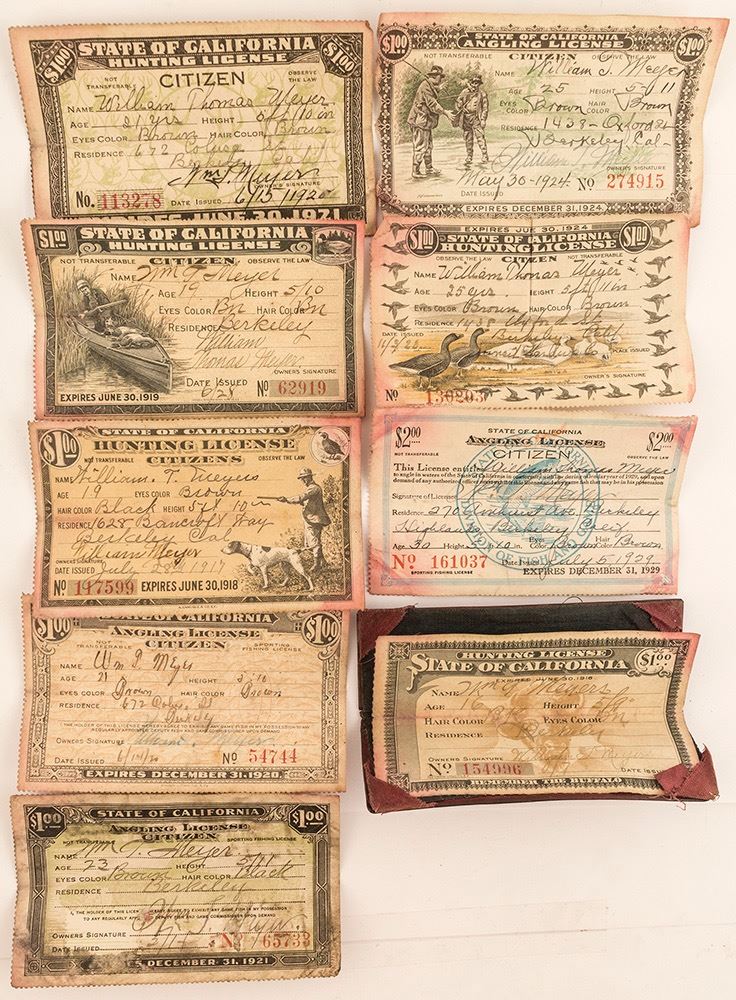 STATE OF CALIFORNIA
HUNTING LICENSE
$1.00 $1.00
NOT TRANSFERABLE CITIZEN OBSERVE THE LAW
NAME William Thomas Meyer
AGE 21 yrs HEIGHT 5 ft 10 in
EYES COLOR Brown HAIR COLOR Brown
RESIDENCE 672 St
Berkeley Cal
Wm T. Meyer
OWNER'S SIGNATURE
No. 113278 DATE ISSUED 6/15/1920
EXPIRES JUNE 30, 1921
$1.00 STATE OF CALIFORNIA
HUNTING LICENSE
NOT TRANSFERABLE CITIZEN OBSERVE THE LAW
NAME Wm T. Meyer
AGE 19 HEIGHT 5/10
EYES COLOR Bn HAIR COLOR Bn
RESIDENCE Berkeley
William
Thomas Meyer
OWNERS SIGNATURE
DATE ISSUED 6/28 No 62919
EXPIRES JUNE 30, 1919
STATE OF CALIFORNIA
$1.00 HUNTING LICENSE
NOT TRANSFERABLE CITIZENS OBSERVE THE LAW
NAME William. T. Meyers
AGE 19 EYES COLOR Brown
HAIR COLOR Black 5 ft 10 in
RESIDENCE 1628 Bancroft Way
Berkeley Cal
William Meyer
OWNERS SIGNATURE
DATE ISSUED July 28 1917
No 117599 EXPIRES JUNE 30, 1918
STATE OF CALIFORNIA
$1.00 ANGLING LICENSE $1.00
NOT TRANSFERABLE CITIZEN SPORTING FISHING LICENSE
NAME Wm T. Meyer
AGE 21 HEIGHT 5/10
EYES COLOR Brown HAIR COLOR Brown
RESIDENCE 672 St
THE HOLDER OF THIS LICENSE AGREES TO EXHIBIT ANY GAME FISH IN MY POSSESSION TO ANY
REGULARLY APPOINTED DEPUTY FISH AND GAME COMMISSIONER UPON DEMAND
OWNERS SIGNATURE
DATE ISSUED 6/14/20 No 54744
EXPIRES DECEMBER 31, 1920
STATE OF CALIFORNIA
$1.00 ANGLING LICENSE $1.00
NOT TRANSFERABLE CITIZEN SPORTING FISHING LICENSE
NAME Wm T. Meyer
AGE 23 HEIGHT 5/11
EYES COLOR Brown HAIR COLOR Black
RESIDENCE Berkeley
I, THE HOLDER OF THIS LICENSE, AGREE TO EXHIBIT ANY GAME FISH IN MY POSSESSION
TO ANY REGULARLY APP. DEPUTY FISH AND GAME COMMISSIONER UPON DEMAND
OWNERS SIGNATURE
DATE ISSUED No 65733
DECEMBER 31, 1921
STATE OF CALIFORNIA
$1.00 ANGLING LICENSE $1.00
NOT TRANSFERABLE CITIZEN OBSERVE THE LAW
NAME William T. Meyer
AGE 25 HEIGHT 5-11
EYES COLOR Brown HAIR COLOR Brown
RESIDENCE 1438- Oxford St
Berkeley Cal-
OWNER'S SIGNATURE
May 30-1924. No 274915
DATE ISSUED
EXPIRES DECEMBER 31, 1924
EXPIRES JUNE 30, 1924
$1.00 STATE OF CALIFORNIA $1.00
HUNTING LICENSE
OBSERVE THE LAW CITIZEN NOT TRANSFERABLE
NAME William Thomas Meyer
AGE 25 yrs HEIGHT 5 ft 11 in
EYES COLOR Brown HAIR COLOR Brown
RESIDENCE 1438 Oxford St
DATE ISSUED Berkeley Calif
PLACE ISSUED
OWNER'S SIGNATURE
No 130203
STATE OF CALIFORNIA
$2.00 ANGLING LICENSE $2.00
NOT TRANSFERABLE CITIZEN OBSERVE THE LAW
This License entitles William Thomas Meyer
Signature of Licensee
Residence 270 Ave, Berkeley
Highlands, Berkeley
Age 30 Height Eyes Color Brown Hair Color Brown
No 161037 Date Issued July 5, 1929
SPORTING FISHING LICENSE EXPIRES DECEMBER 31, 1929
HUNTING LICENSE
STATE OF CALIFORNIA $1.00
EXPIRES JUNE 30, 1916
NAME Wm Meyers
AGE 16 HEIGHT 5/9"
HAIR COLOR EYES COLOR Bn
RESIDENCE Berkeley
OWNERS SIGNATURE
No 154996 DATE ISSUED
REMEMBER THE BUFFALO